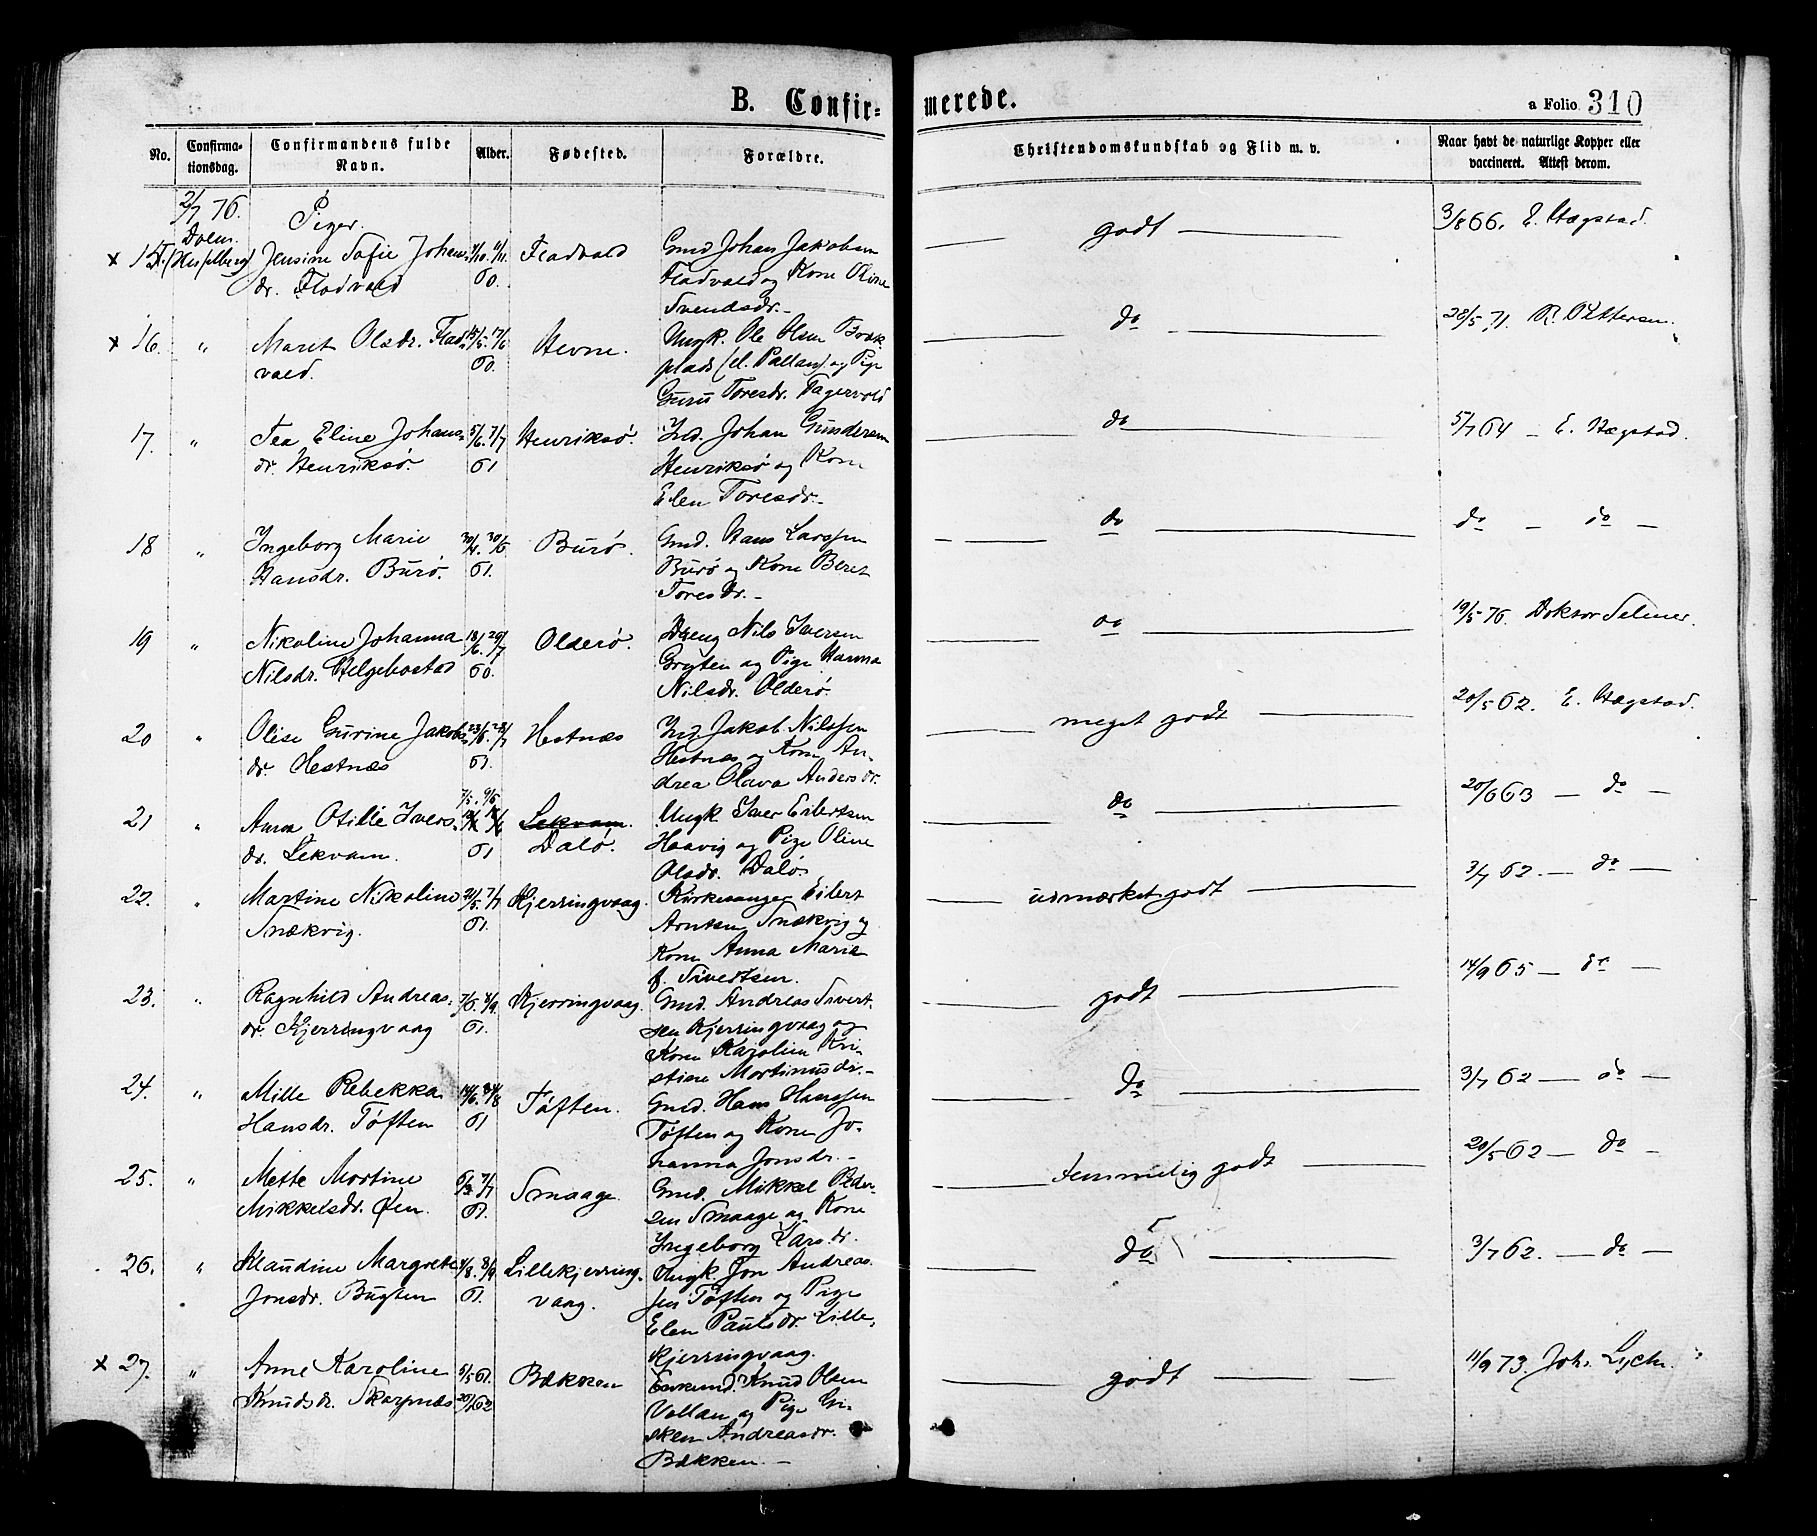 B. Confir-
merede.
a Folio 310
No.
Confirma-
tionsdag.
Confirmandens fulde
Navn.
Alder.
Fødested.
Forældre.
Christendomskundskab og Flid m. v.
Naar havt de naturlige Kopper eller
vaccineret. Attest derom.
2/7 76.
Piger.
x 15. (Hesselberg) Jensine Sofie Johans-
dr. Fladvald
60.
Fladvald
Gmd Johan Jakobsen
Fladvald og Kone Oline
Svendsdr.
godt
3/8 66. E. Hegstad.
x 16. " Maret Olsdr. Flad-
vald.
15/5. 17/6
60.
Hevne.
Ungk. Ole Olsen
plads (el. Pallan) og Pige
Guru Toresdr. Fagervold
do
28/5 71. R. Pettersen.
17. " Tea Eline Johans-
dr. Henriksø.
5/6. 7/7
61
Henriksø.
Ind. Johan Gundersen
Henriksø og Kone
Elen Toresdr.
do
5/7 64 - E. Hegstad.
18 " Ingeborg Marie
Hansdr. Burø.
30/4. 30/5
61.
Burø.
Gmd. Hans Larssen
Burø og Kone Beret
Toresdr.
do
do - do -
19 " Nikoline Johanna
Nilsdr. Helgebostad
18/6. 29/7
60.
Olderø.
Nils Iversen
Gryten og Pige Hanna
Nilsdr. Olderø.
do
19/5 76. Doktor Selmer.
20 " Olise Gurine Jakobs-
dr. Hestnæs
23/6. 28/7
61.
Hestnæs
Ind Jakob Nilssen
Hestnæs og Kone An-
drea Olava Andersdr.
meget godt
20/5 62. E. Hegstad.
21 " Anna Otilie Ivers-
dr. Lekvam.
7/5. 9/6
61
Lekvam.
Dalø.
Ungk Iver Eilertsen
Haavig og Pige Oline
Olsdr. Dalø.
do
20/6 63 - do -
22. " Martine Nikoline
Snækvig.
21/5. 7/7
61.
Kjerringvaag.
Kirkesanger Eilert
Arntsen Snækvig og
Kone Anna Maria
f. Sivertsen.
udmærket godt
3/7 62. - do -
23. " Ragnhild Andreas-
dr. Kjerringvaag
7/5. 8/9
61.
Kjerringvaag.
Gmd. Andreas Sivert-
sen Kjerringvaag og
Kone Karoline Kri-
stine Martinusdr.
godt
14/9 65 - do -
24. " Mille Rebekka
Hansdr. Tøften
61
Tøften.
Gmd. Hans Hanssen
Tøften og Kone Jo-
hanna Jonsdr.
do
3/7 62 - do -
25. " Mette Martine
Mikkelsdr. Øen.
6/3. 7/7
61.
Smaage.
Gmd. Mikkel Peder-
sen Smaage og Kone
Ingeborg Larsdr.
temmelig godt
20/5 62 - do -
26. " Klaudine Margrete
Jonsdr. Bugten
4/8. 8/9
61.
Lillekjerring-
vaag.
Ungk. Jon Andreas-
sen Tøften og Pige
Elen Paulsdr. Lille-
kjerringvaag.
do
3/7 62. - do -
x 27. " Anne Karoline
Knudsdr. Skarpnæs
5/5 61.
Bækken
Enkemd. Knud Olsen
Vollan og Pige Gi-
sken Andreasdr.
Bækken.
godt
11/9 73. Joh.